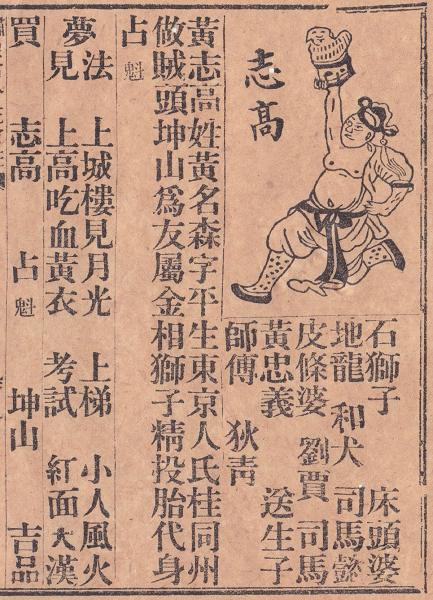 志高
石獅子 床頭婆
地龍 和犬 司馬懿
皮條婆 劉賈 司馬
黃忠義 送生子
師傅 狄青
黃志高姓黃名森字平生東京人氏桂同州
做賊頭坤山爲友屬金相獅子精投胎代身
占魁
法 上城樓見月光 上梯 小人風火
夢見 上高吃血黃衣 考試 紅面大漢
買 志高 占魁 坤山 吉品